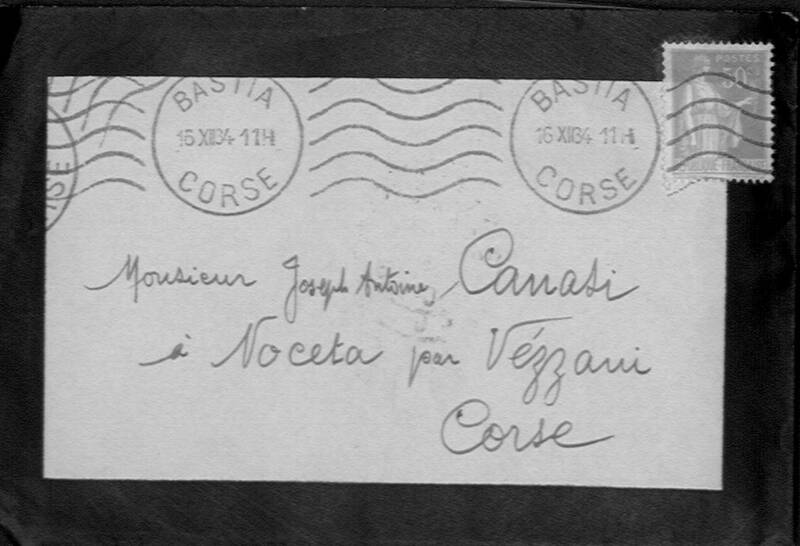 POSTES
50c
BASTIA
16 XII 34 11H
CORSE
BASTIA
16 XII 34 11H
CORSE
Monsieur Joseph Antoine, Canasi
à Noceta par Vézzani
Corse